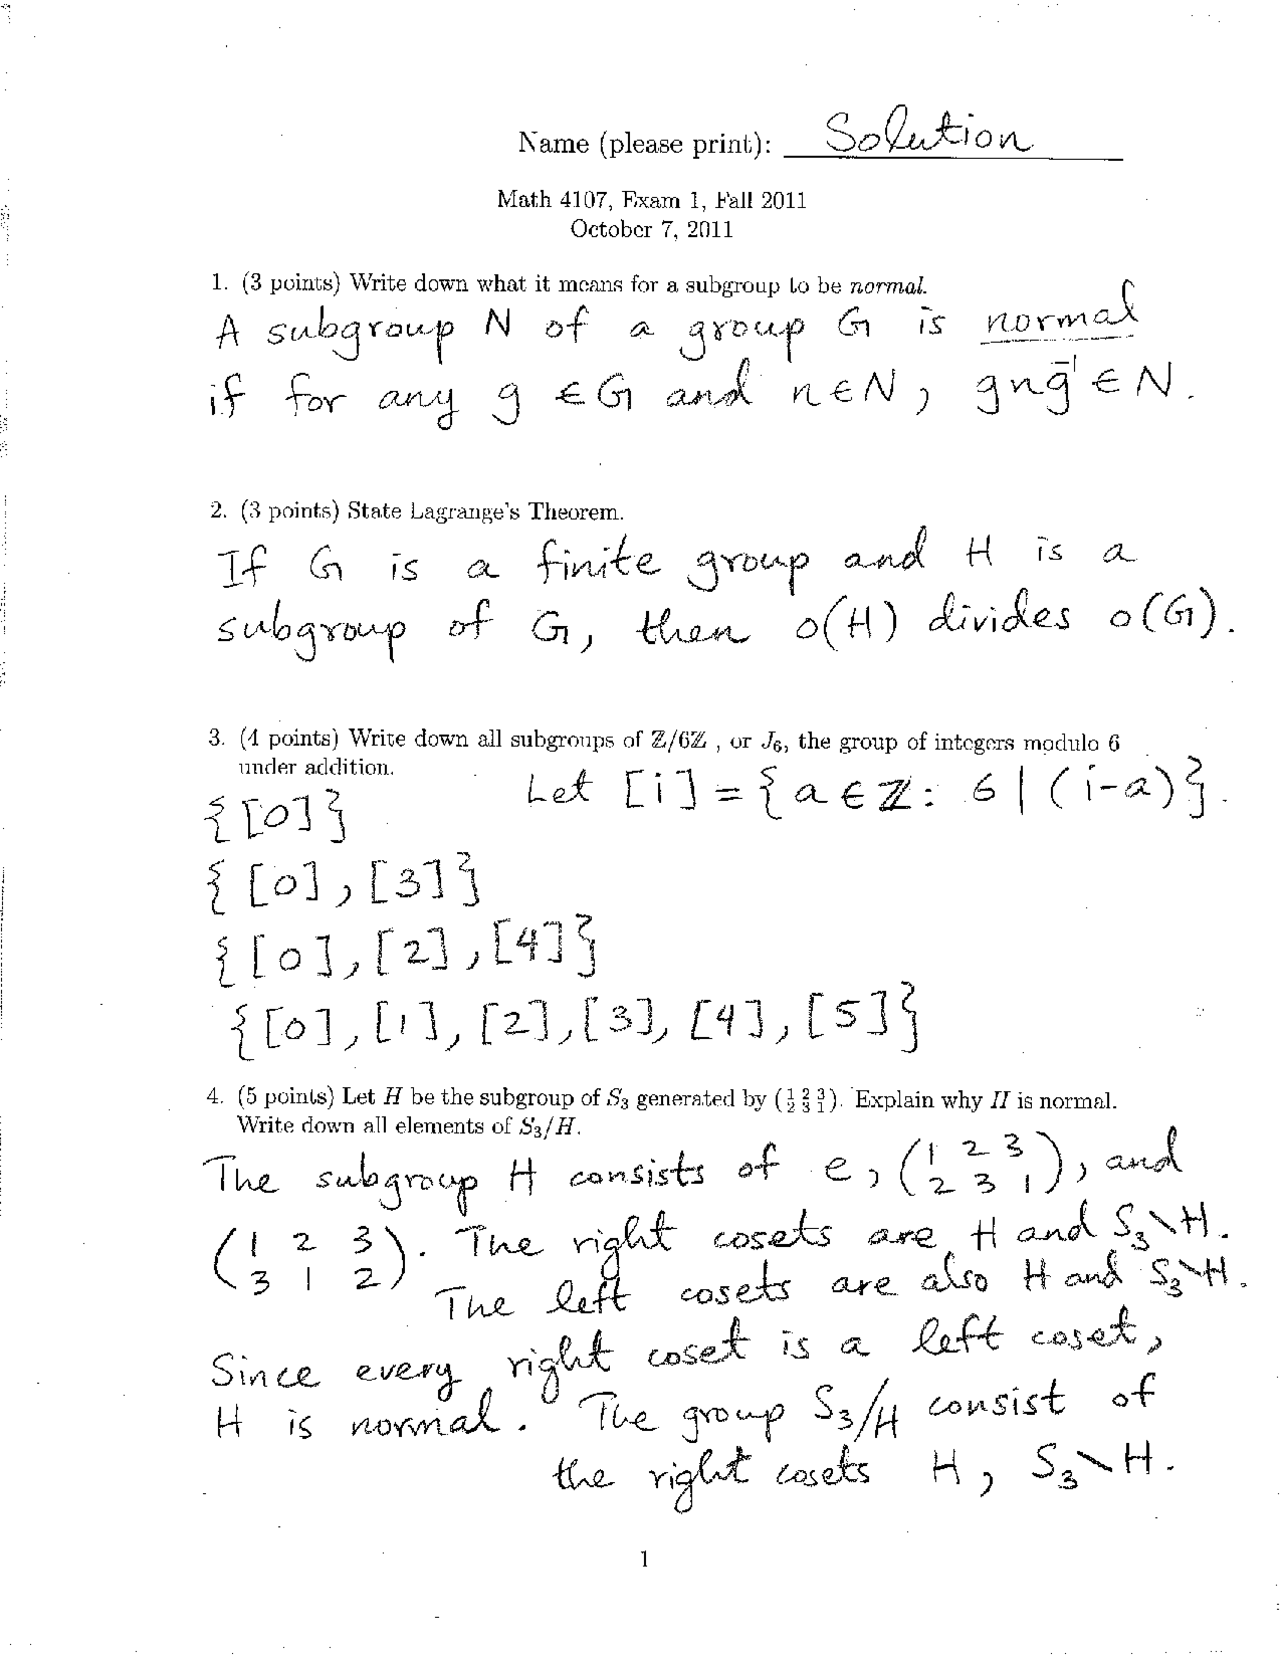 Name (please print): Solution
Math 4107, Exam 1, Fall 2011
October 7, 2011
1. (3 points) Write down what it means for a subgroup to be normal.
A subgroup N of a group G is normal
if for any g ∈ G and n ∈ N, gng⁻¹ ∈ N.
2. (3 points) State Lagrange's Theorem.
If G is a finite group and H is a
subgroup of G, then o(H) divides o(G).
3. (4 points) Write down all subgroups of ℤ/6ℤ , or J₆, the group of integers modulo 6
under addition.
Let [i] = {a ∈ ℤ: 6 | (i-a)}.
{[0]}
{[0], [3]}
{[0], [2], [4]}
{[0], [1], [2], [3], [4], [5]}
4. (5 points) Let H be the subgroup of S₃ generated by (1 2 3 / 2 3 1). Explain why H is normal.
Write down all elements of S₃/H.
The subgroup H consists of e, (1 2 3 / 2 3 1), and
(1 2 3 / 3 1 2). The right cosets are H and S₃∖H.
The left cosets are also H and S₃∖H.
Since every right coset is a left coset,
H is normal. The group S₃/H consist of
the right cosets H, S₃∖H.
1